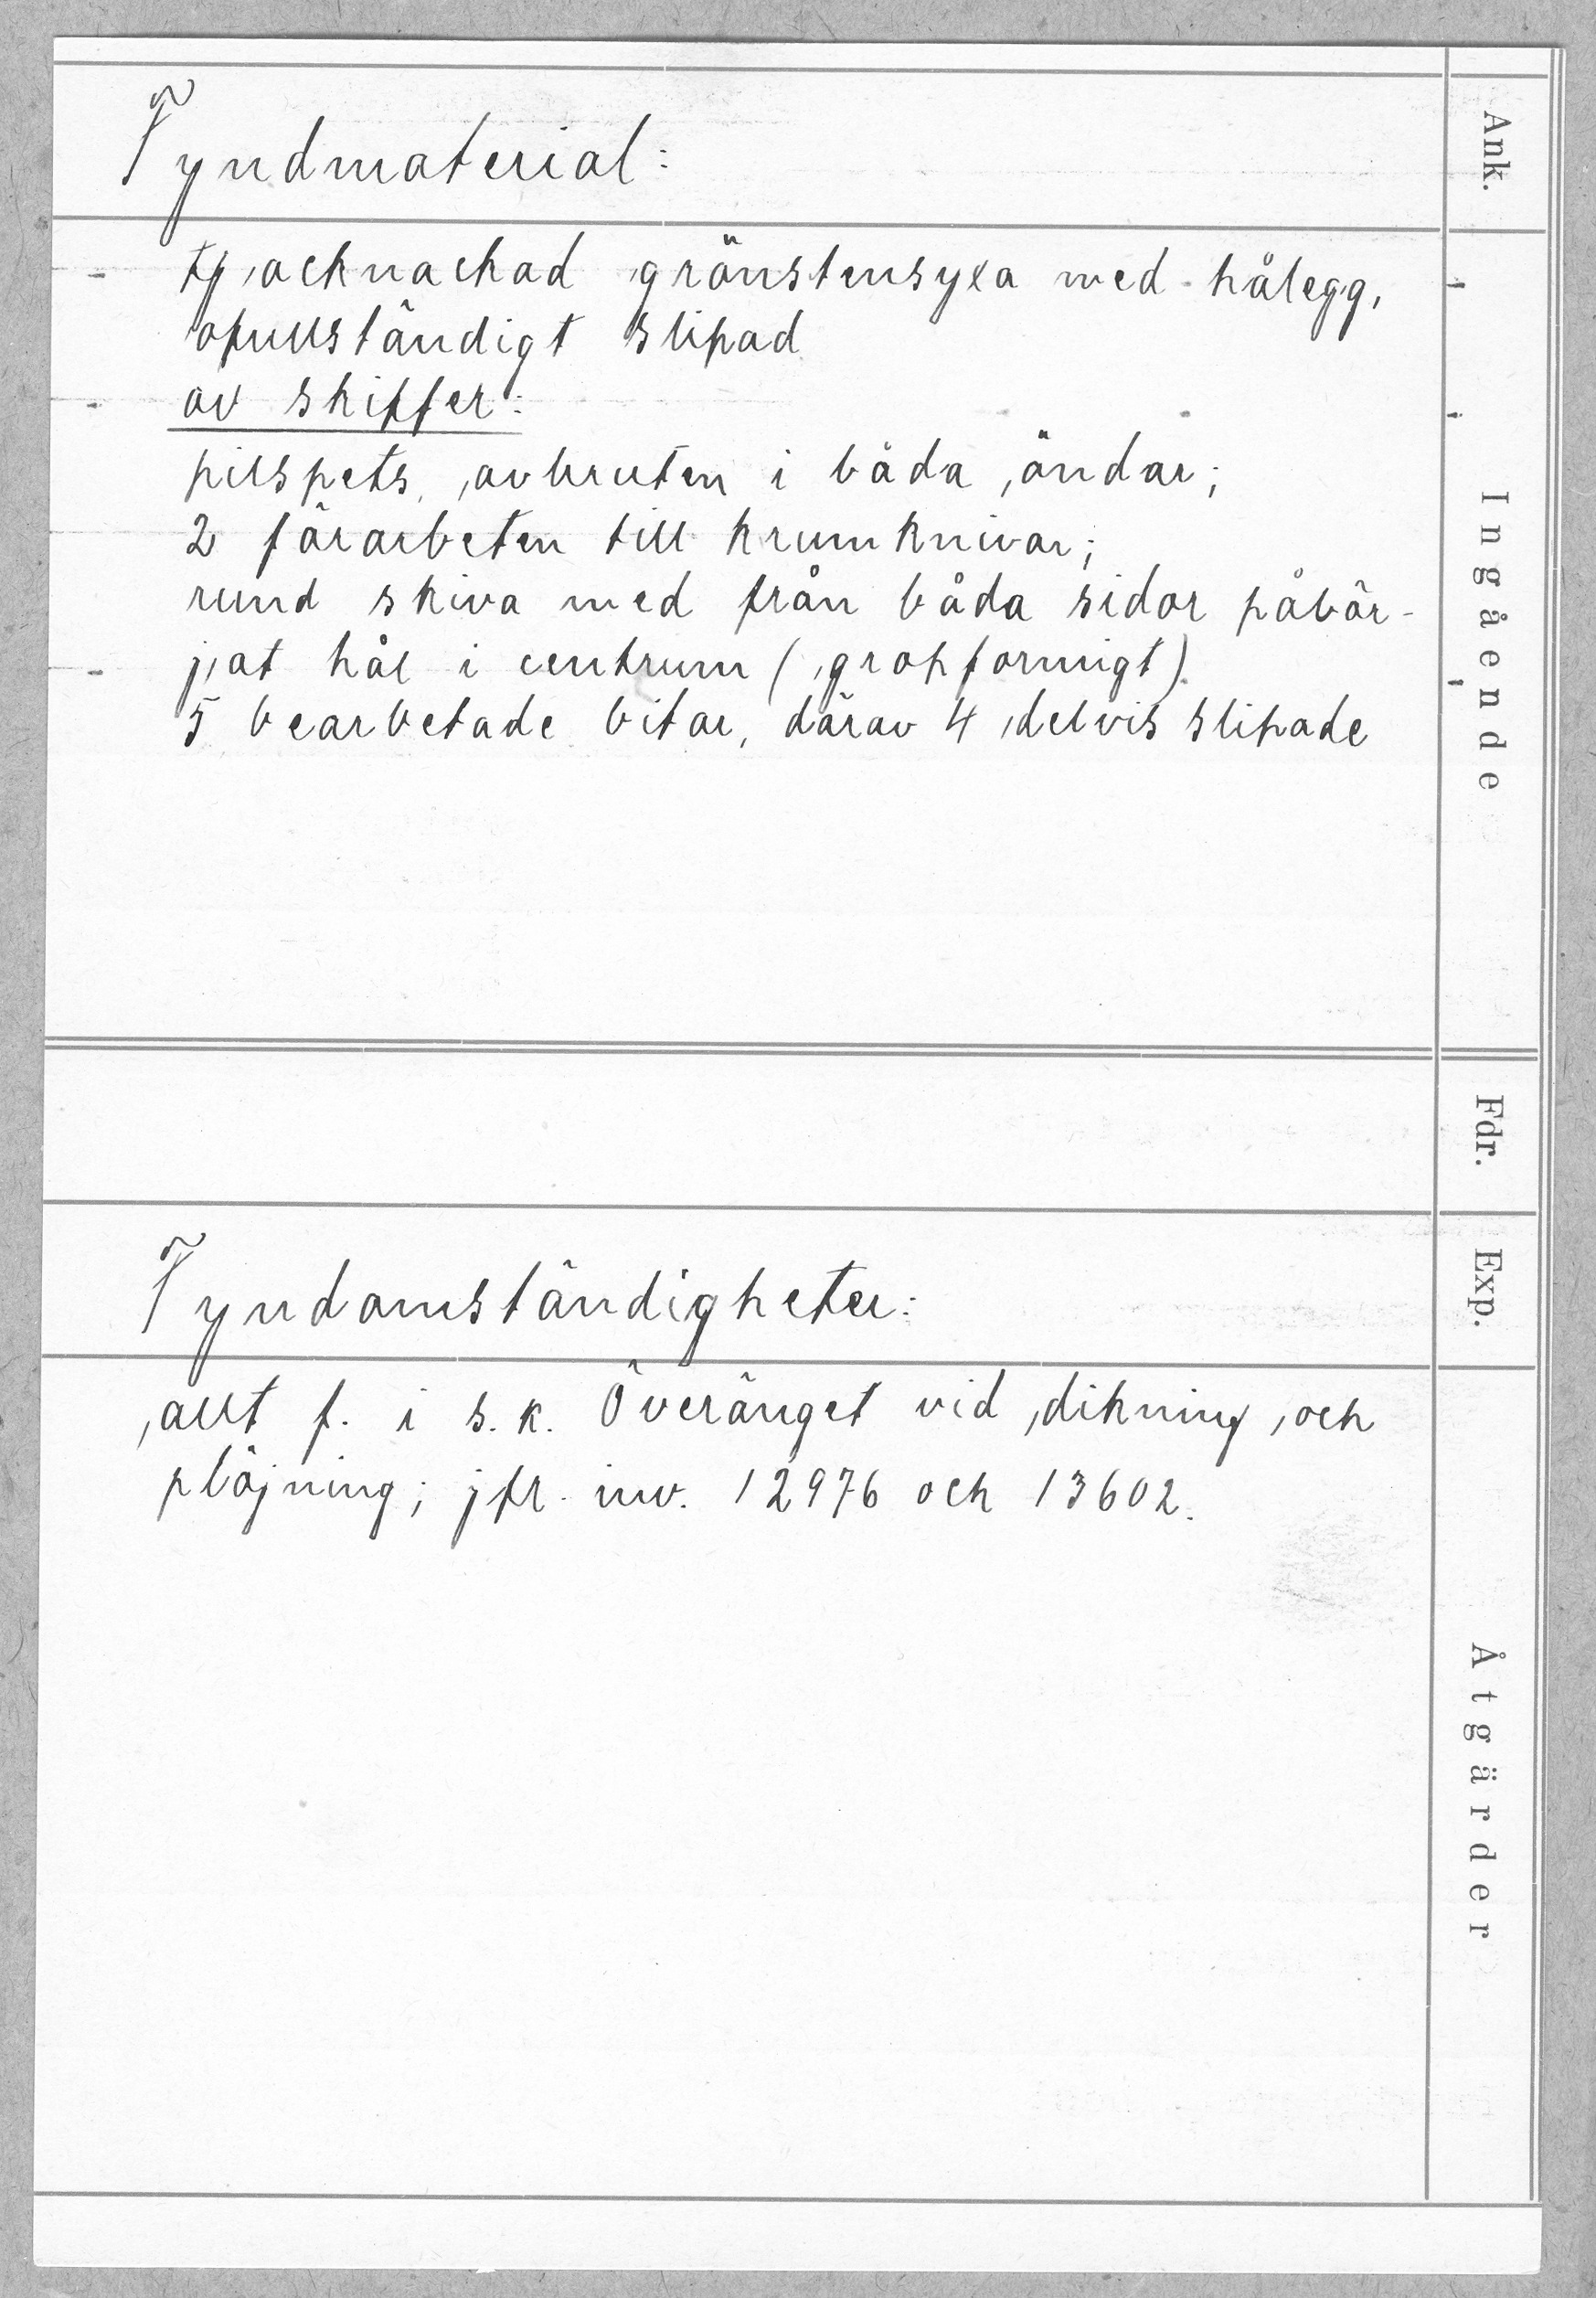 Fyndmaterial:
tjocknackad grönstensyxa med hålegg,
ofullständigt slipad
av skiffer:
pilspets, avbruten i båda ändar;
2 förarbeten till krumknivar;
rund skiva med från båda sidor påbör-
jat hål i centrum (gropformigt)
5 bearbetade bitar, därav 4 delvis slipade
Fyndomständigheter:
allt f. i s.k. Överänget vid dikning och
plöjning; jfr. inv. 12976 och 13602.
Ank.
Ingående
Fdr.
Exp.
Åtgärder